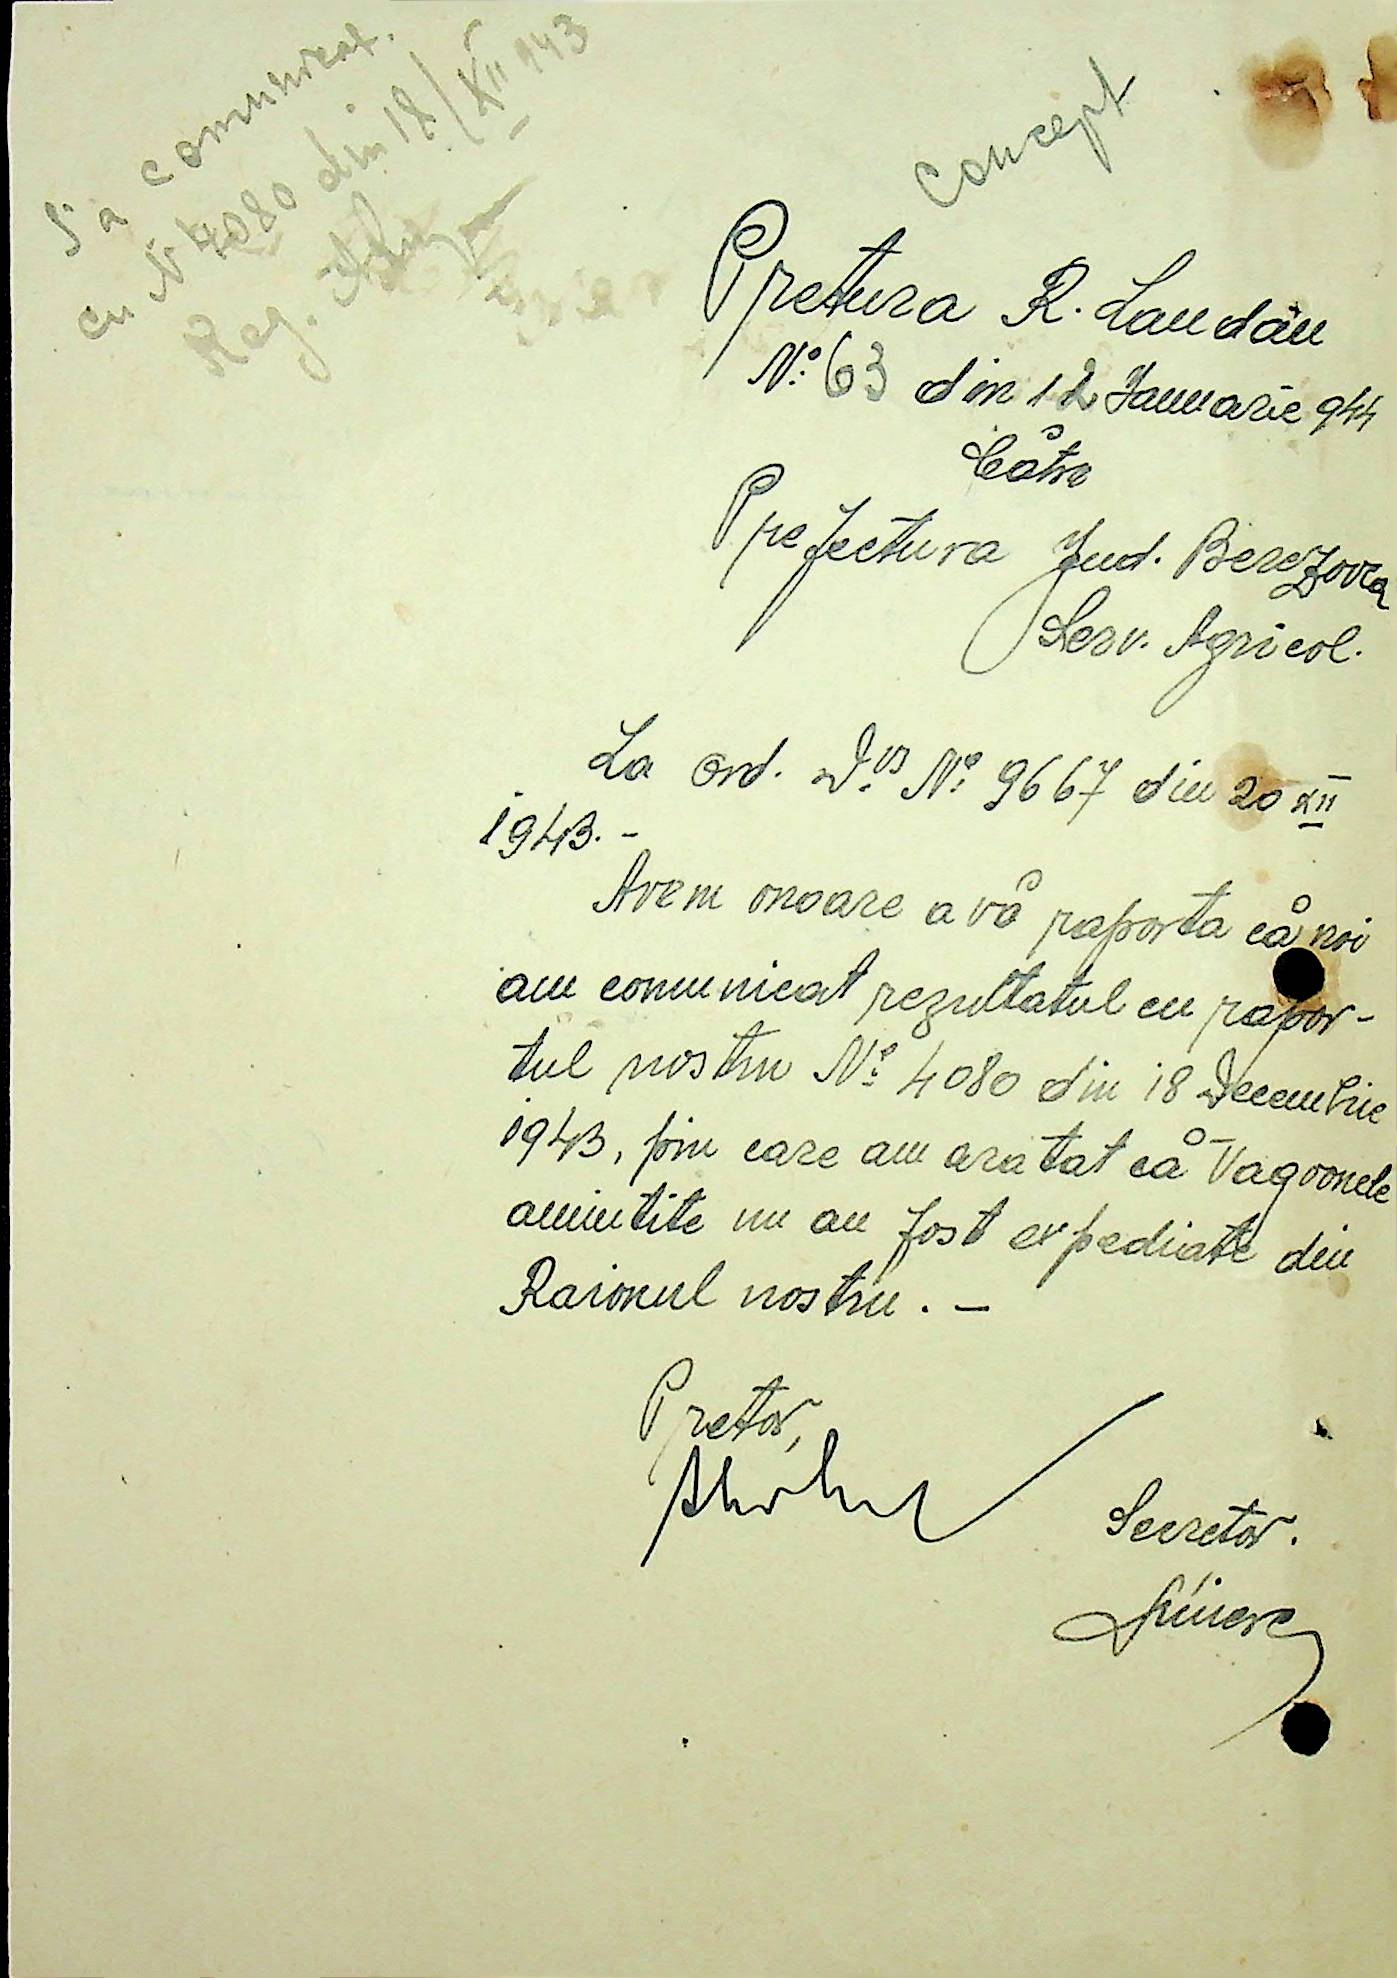 S'a comunicat.
cu N 4080 din 18/XII 943
Reg.
Concept
Pretura R. Landău
No. 63 din 12 Januarie 944
Cătră
Prefectura Jud. Berezovca
Serv. Agricol.
La Ord. Dvs No. 9667 din 20 XII
1943.-
Avem onoare a vă raporta că noi
am comunicat rezultatul cu rapor-
tul nostru No. 4080 din 18 Decembrie
1943, prin care am arătat că Vagoonele
amintite nu au fost expediate din
Raionul nostru. -
Pretor,
Secretar.